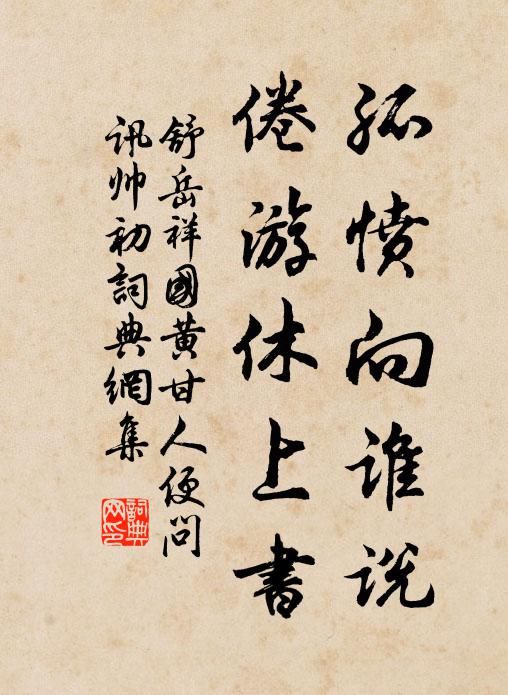 孤愤向谁说
倦游休上書
舒岳祥國黄甘人便問
訊帅初詞典網集
詞典网印